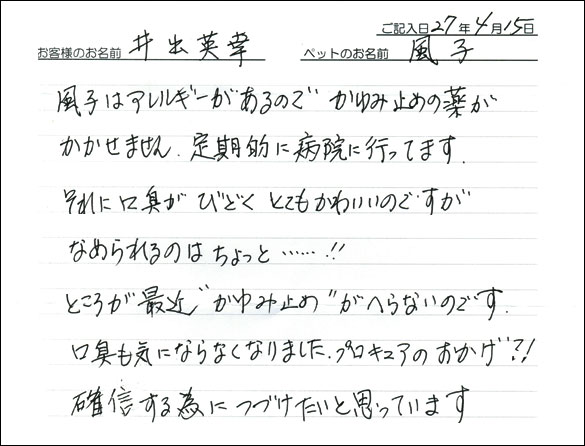 ご記入日27年4月15日
お客様のお名前 井出英幸 ペットのお名前 風子
風子はアレルギーがあるので かゆみ止めの薬が
かかせません.定期的に病院に行ってます.
それに口臭が ひどく とてもかわいいのですが
なめられるのは ちょっと……!!
ところが最近"かゆみ止め"がへらないのです.
口臭も気にならなくなりました.プロキュアのおかげ?!
確信する為に つづけたいと思っています